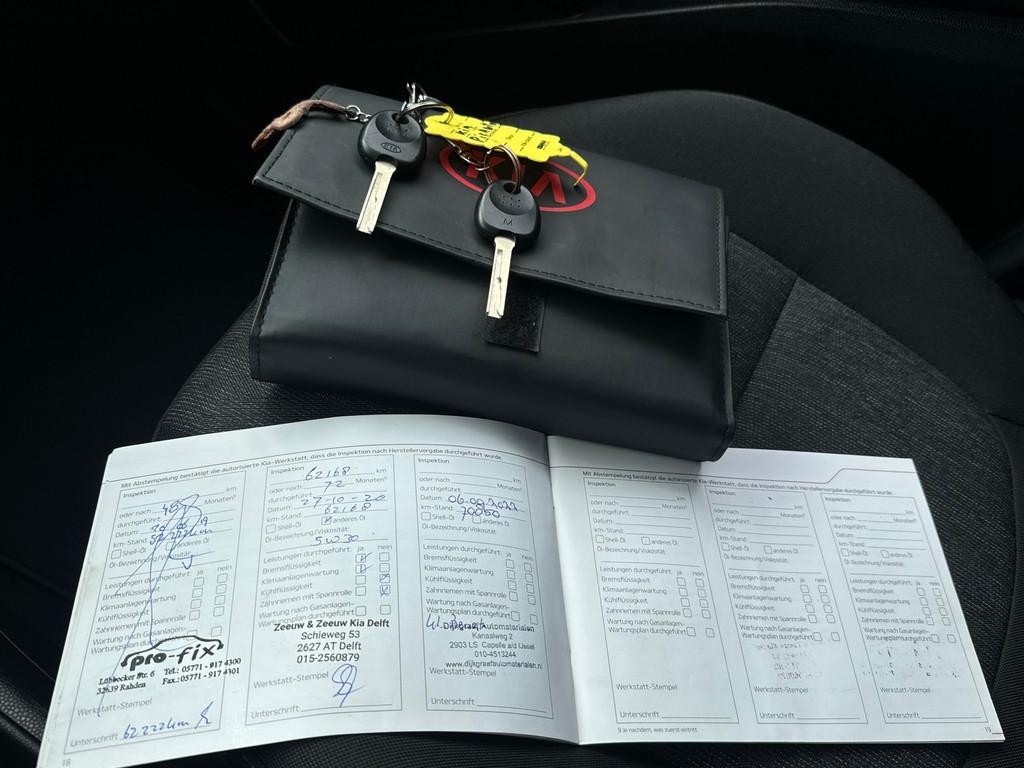 KIA
KIA
M
Mit Abstempelung bestätigt die autorisierte Kia-Werkstatt, dass die Inspektion nach Herstellervorgabe durchgeführt wurde.
Inspektion km
oder nach 48 Monaten⁹
durchgeführt.
Datum:
km-Stand:
Shell-Öl anderes Öl
Öl-Bezeichnung/Viskosität:
Leistungen durchgeführt: ja nein
Bremsflüssigkeit
Klimaanlagenwartung
Kühlflüssigkeit
Zahnriemen mit Spannrolle
Wartung nach Gasanlagen-
Wartungsplan durchgeführt
pro-fix
Lübbecker Str. 6 Tel.: 05771 - 917 4300
32639 Rahden Fax.: 05771 - 917 4301
Werkstatt-Stempel
Unterschrift 62.222km
18
Inspektion 62168 km
oder nach 72 Monaten⁹
durchgeführt.
Datum: 27-10-20
km-Stand: 62168
Shell-Öl anderes Öl
Öl-Bezeichnung/Viskosität:
5W30
Leistungen durchgeführt: ja nein
Bremsflüssigkeit
Klimaanlagenwartung
Kühlflüssigkeit
Zahnriemen mit Spannrolle
Wartung nach Gasanlagen-
Wartungsplan durchgeführt
Zeeuw & Zeeuw Kia Delft
Schieweg 53
2627 AT Delft
015-2560879
Werkstatt-Stempel
Unterschrift
Inspektion km
oder nach Monaten⁹
durchgeführt.
Datum: 06-09-2022
km-Stand: 70050
Shell-Öl anderes Öl
Öl-Bezeichnung/Viskosität:
Leistungen durchgeführt: ja nein
Bremsflüssigkeit
Klimaanlagenwartung
Kühlflüssigkeit
Zahnriemen mit Spannrolle
Wartung nach Gasanlagen-
Wartungsplan durchgeführt
Dijkgraafautomaterialen
Kanaalweg 2
2903 LS Capelle a/d IJssel
010-4513244
www.dijkgraafautomaterialen.nl
Werkstatt-Stempel
Unterschrift
Mit Abstempelung bestätigt die autorisierte Kia-Werkstatt, dass die Inspektion nach Herstellervorgabe durchgeführt wurde.
Inspektion km
oder nach Monaten⁹
durchgeführt.
Datum:
km-Stand:
Shell-Öl anderes Öl
Öl-Bezeichnung/Viskosität:
Leistungen durchgeführt: ja nein
Bremsflüssigkeit
Klimaanlagenwartung
Kühlflüssigkeit
Zahnriemen mit Spannrolle
Wartung nach Gasanlagen-
Wartungsplan durchgeführt
Werkstatt-Stempel
Unterschrift
Inspektion km
oder nach Monaten⁹
durchgeführt.
Datum:
km-Stand:
Shell-Öl anderes Öl
Öl-Bezeichnung/Viskosität:
Leistungen durchgeführt: ja nein
Bremsflüssigkeit
Klimaanlagenwartung
Kühlflüssigkeit
Zahnriemen mit Spannrolle
Wartung nach Gasanlagen-
Wartungsplan durchgeführt
Werkstatt-Stempel
Unterschrift
Inspektion km
oder nach Monaten⁹
durchgeführt.
Datum:
km-Stand:
Shell-Öl anderes Öl
Öl-Bezeichnung/Viskosität:
Leistungen durchgeführt: ja nein
Bremsflüssigkeit
Klimaanlagenwartung
Kühlflüssigkeit
Zahnriemen mit Spannrolle
Wartung nach Gasanlagen-
Wartungsplan durchgeführt
Werkstatt-Stempel
Unterschrift
9 Je nachdem, was zuerst eintritt.
19